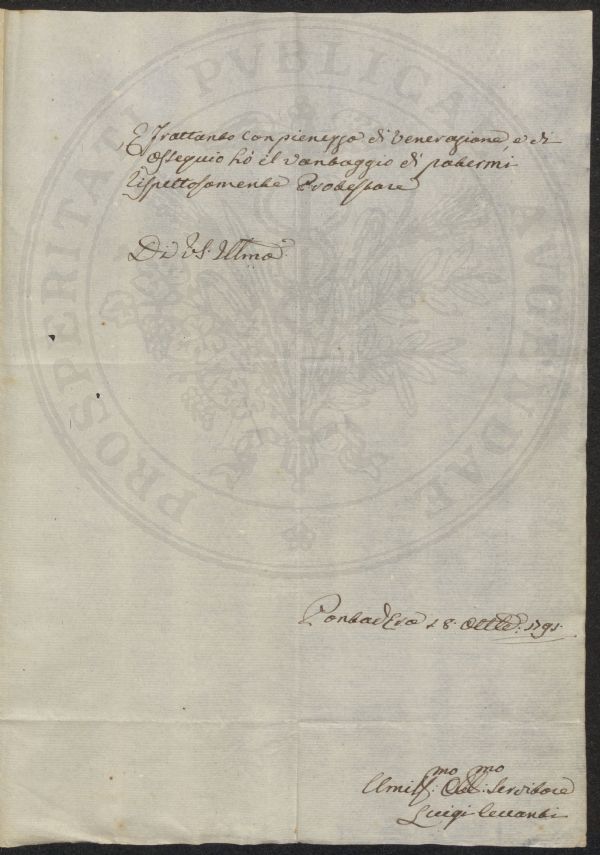 PROSPERITATI PVBLICAE AVGENDAE
E frattanto con pienezza di Venerazione e di
Ossequio hò il vantaggio di potermi
rispettosamente Protestare
Di V.S. Illma
Pontadera 18. Ottbe. 1791.
Umilss.mo Obb.mo Servitore
Luigi